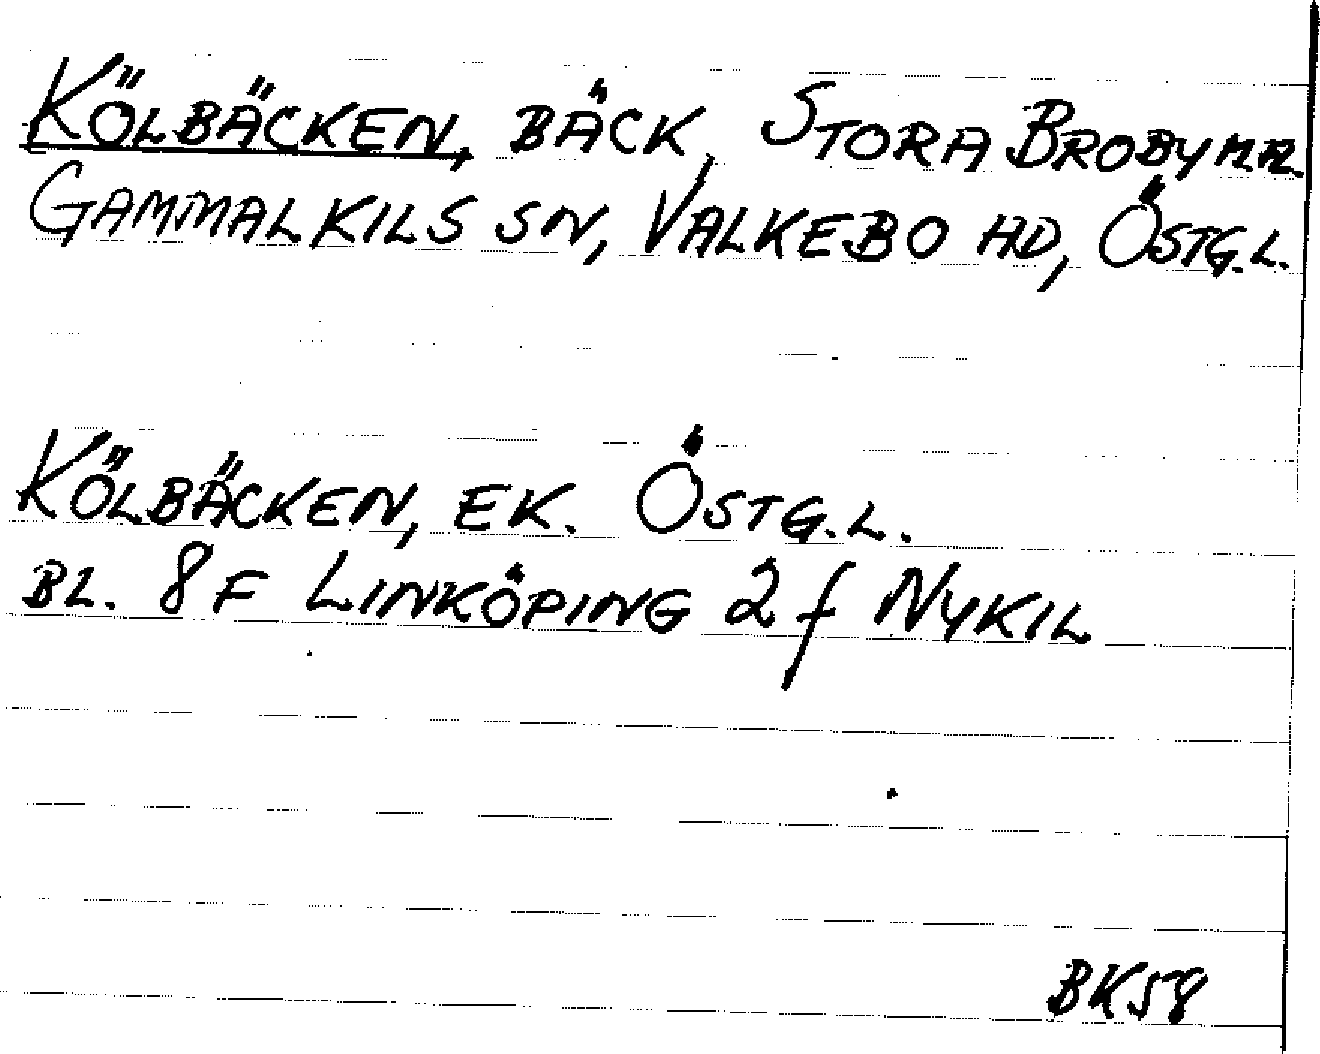 KÖLBÄCKEN, BÄCK, STORA BROBY M.M.
GAMMALKILS SN, VALKEBO HD, ÖSTG.L.
KÖLBÄCKEN, EK. ÖSTG.L.
BL. 8F LINKÖPING 2f NYKIL
BK58